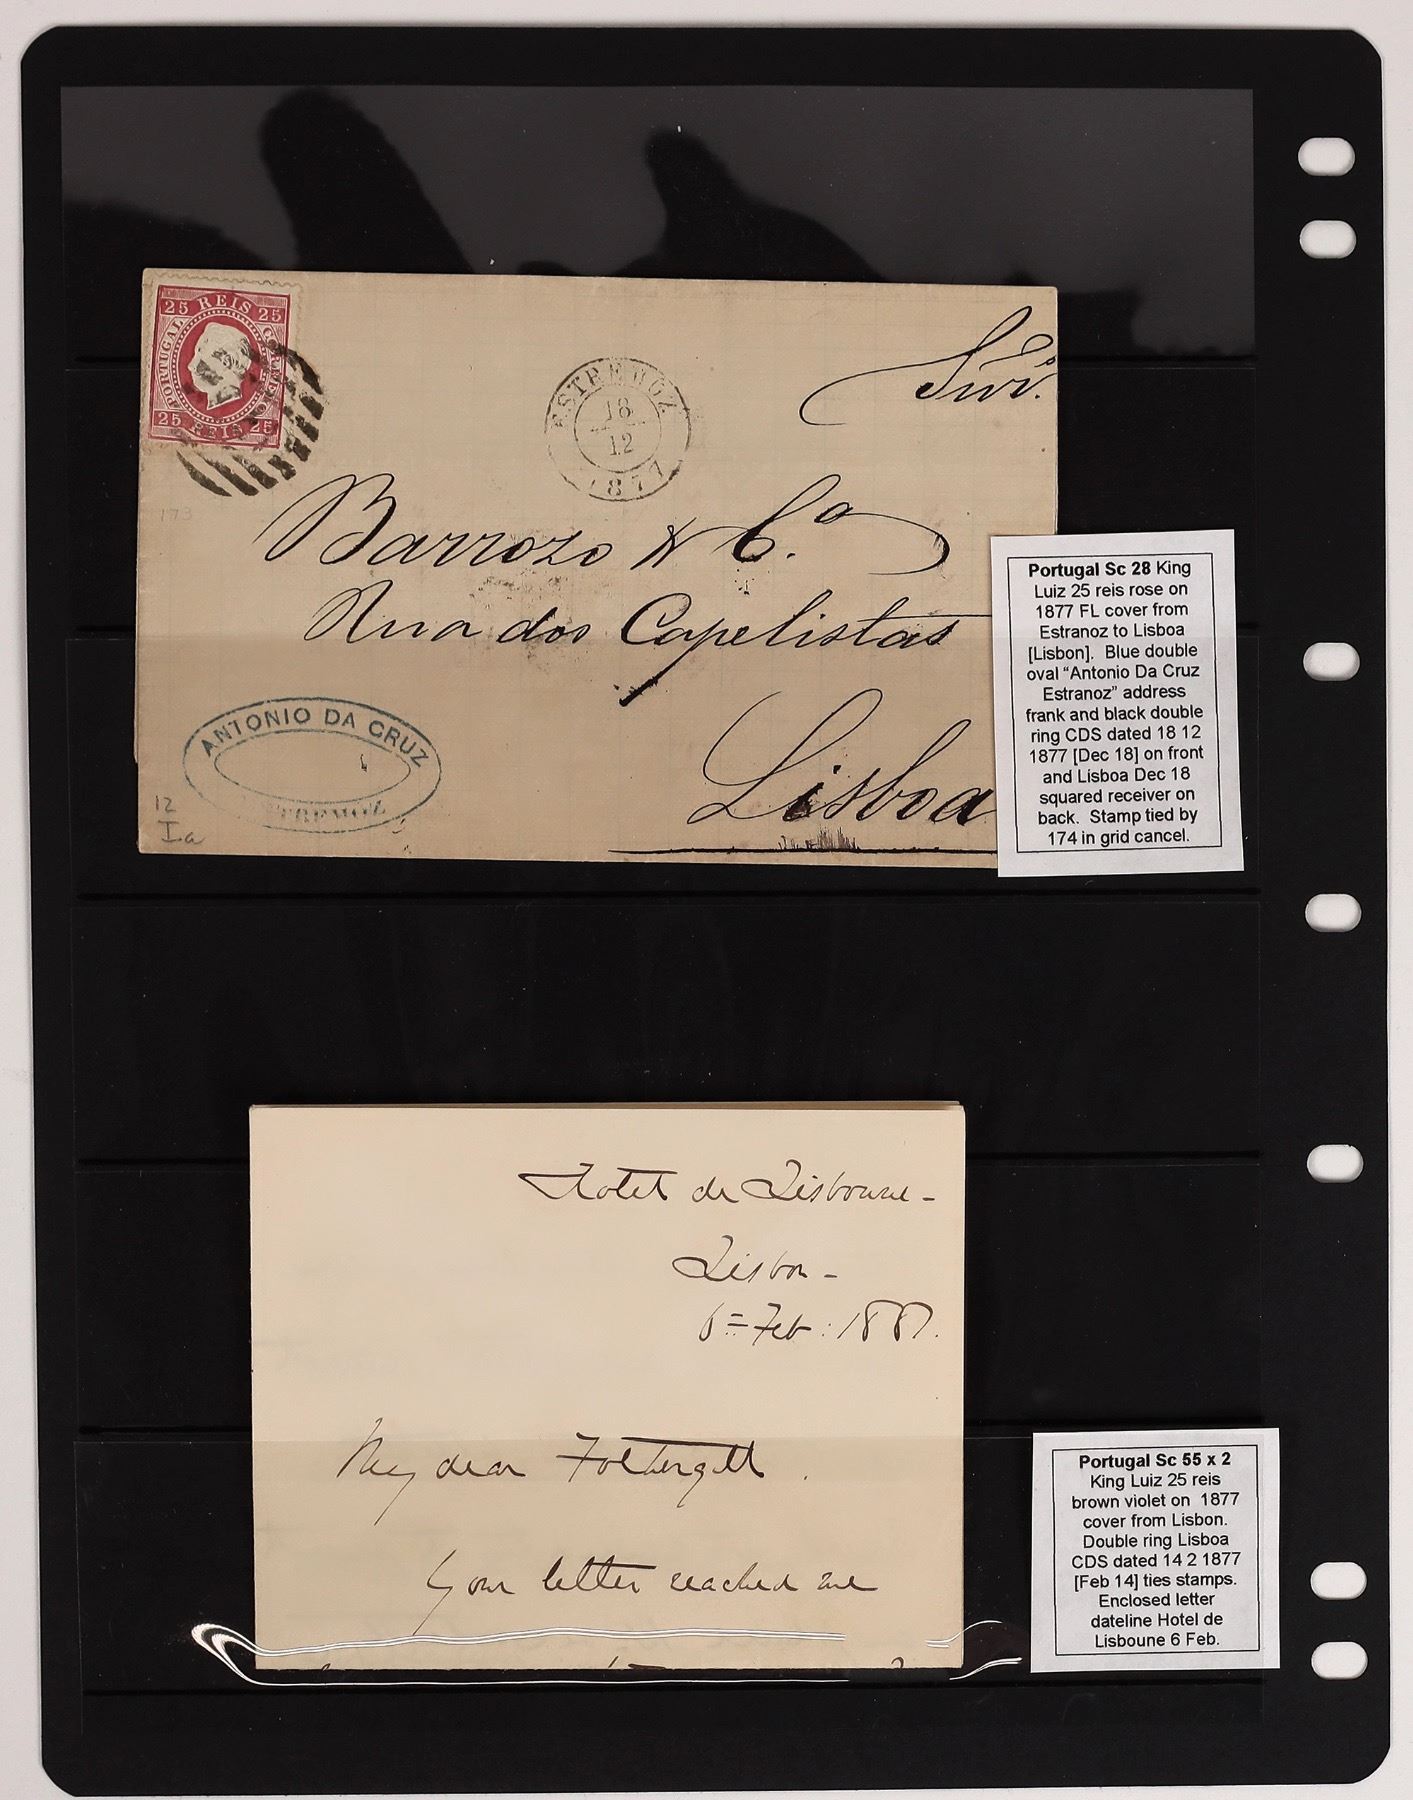 25 REIS 25
PORTUGAL
CORREIO
25 REIS 25
ESTREMOZ
18
12
1877
Snrs.
173
Barrozo & Cª
Rua dos Capelistas
Lisboa
ANTONIO DA CRUZ
ESTREMOZ
12
Ia
Portugal Sc 28 King
Luiz 25 reis rose on
1877 FL cover from
Estranoz to Lisboa
[Lisbon]. Blue double
oval “Antonio Da Cruz
Estranoz” address
frank and black double
ring CDS dated 18 12
1877 [Dec 18] on front
and Lisboa Dec 18
squared receiver on
back. Stamp tied by
174 in grid cancel.
Hotel de Lisbonne -
Lisbon -
6 = Feb : 1887.
My dear Fothergill.
Your letter reached me
Portugal Sc 55 x 2
King Luiz 25 reis
brown violet on 1877
cover from Lisbon.
Double ring Lisboa
CDS dated 14 2 1877
[Feb 14] ties stamps.
Enclosed letter
dateline Hotel de
Lisboune 6 Feb.